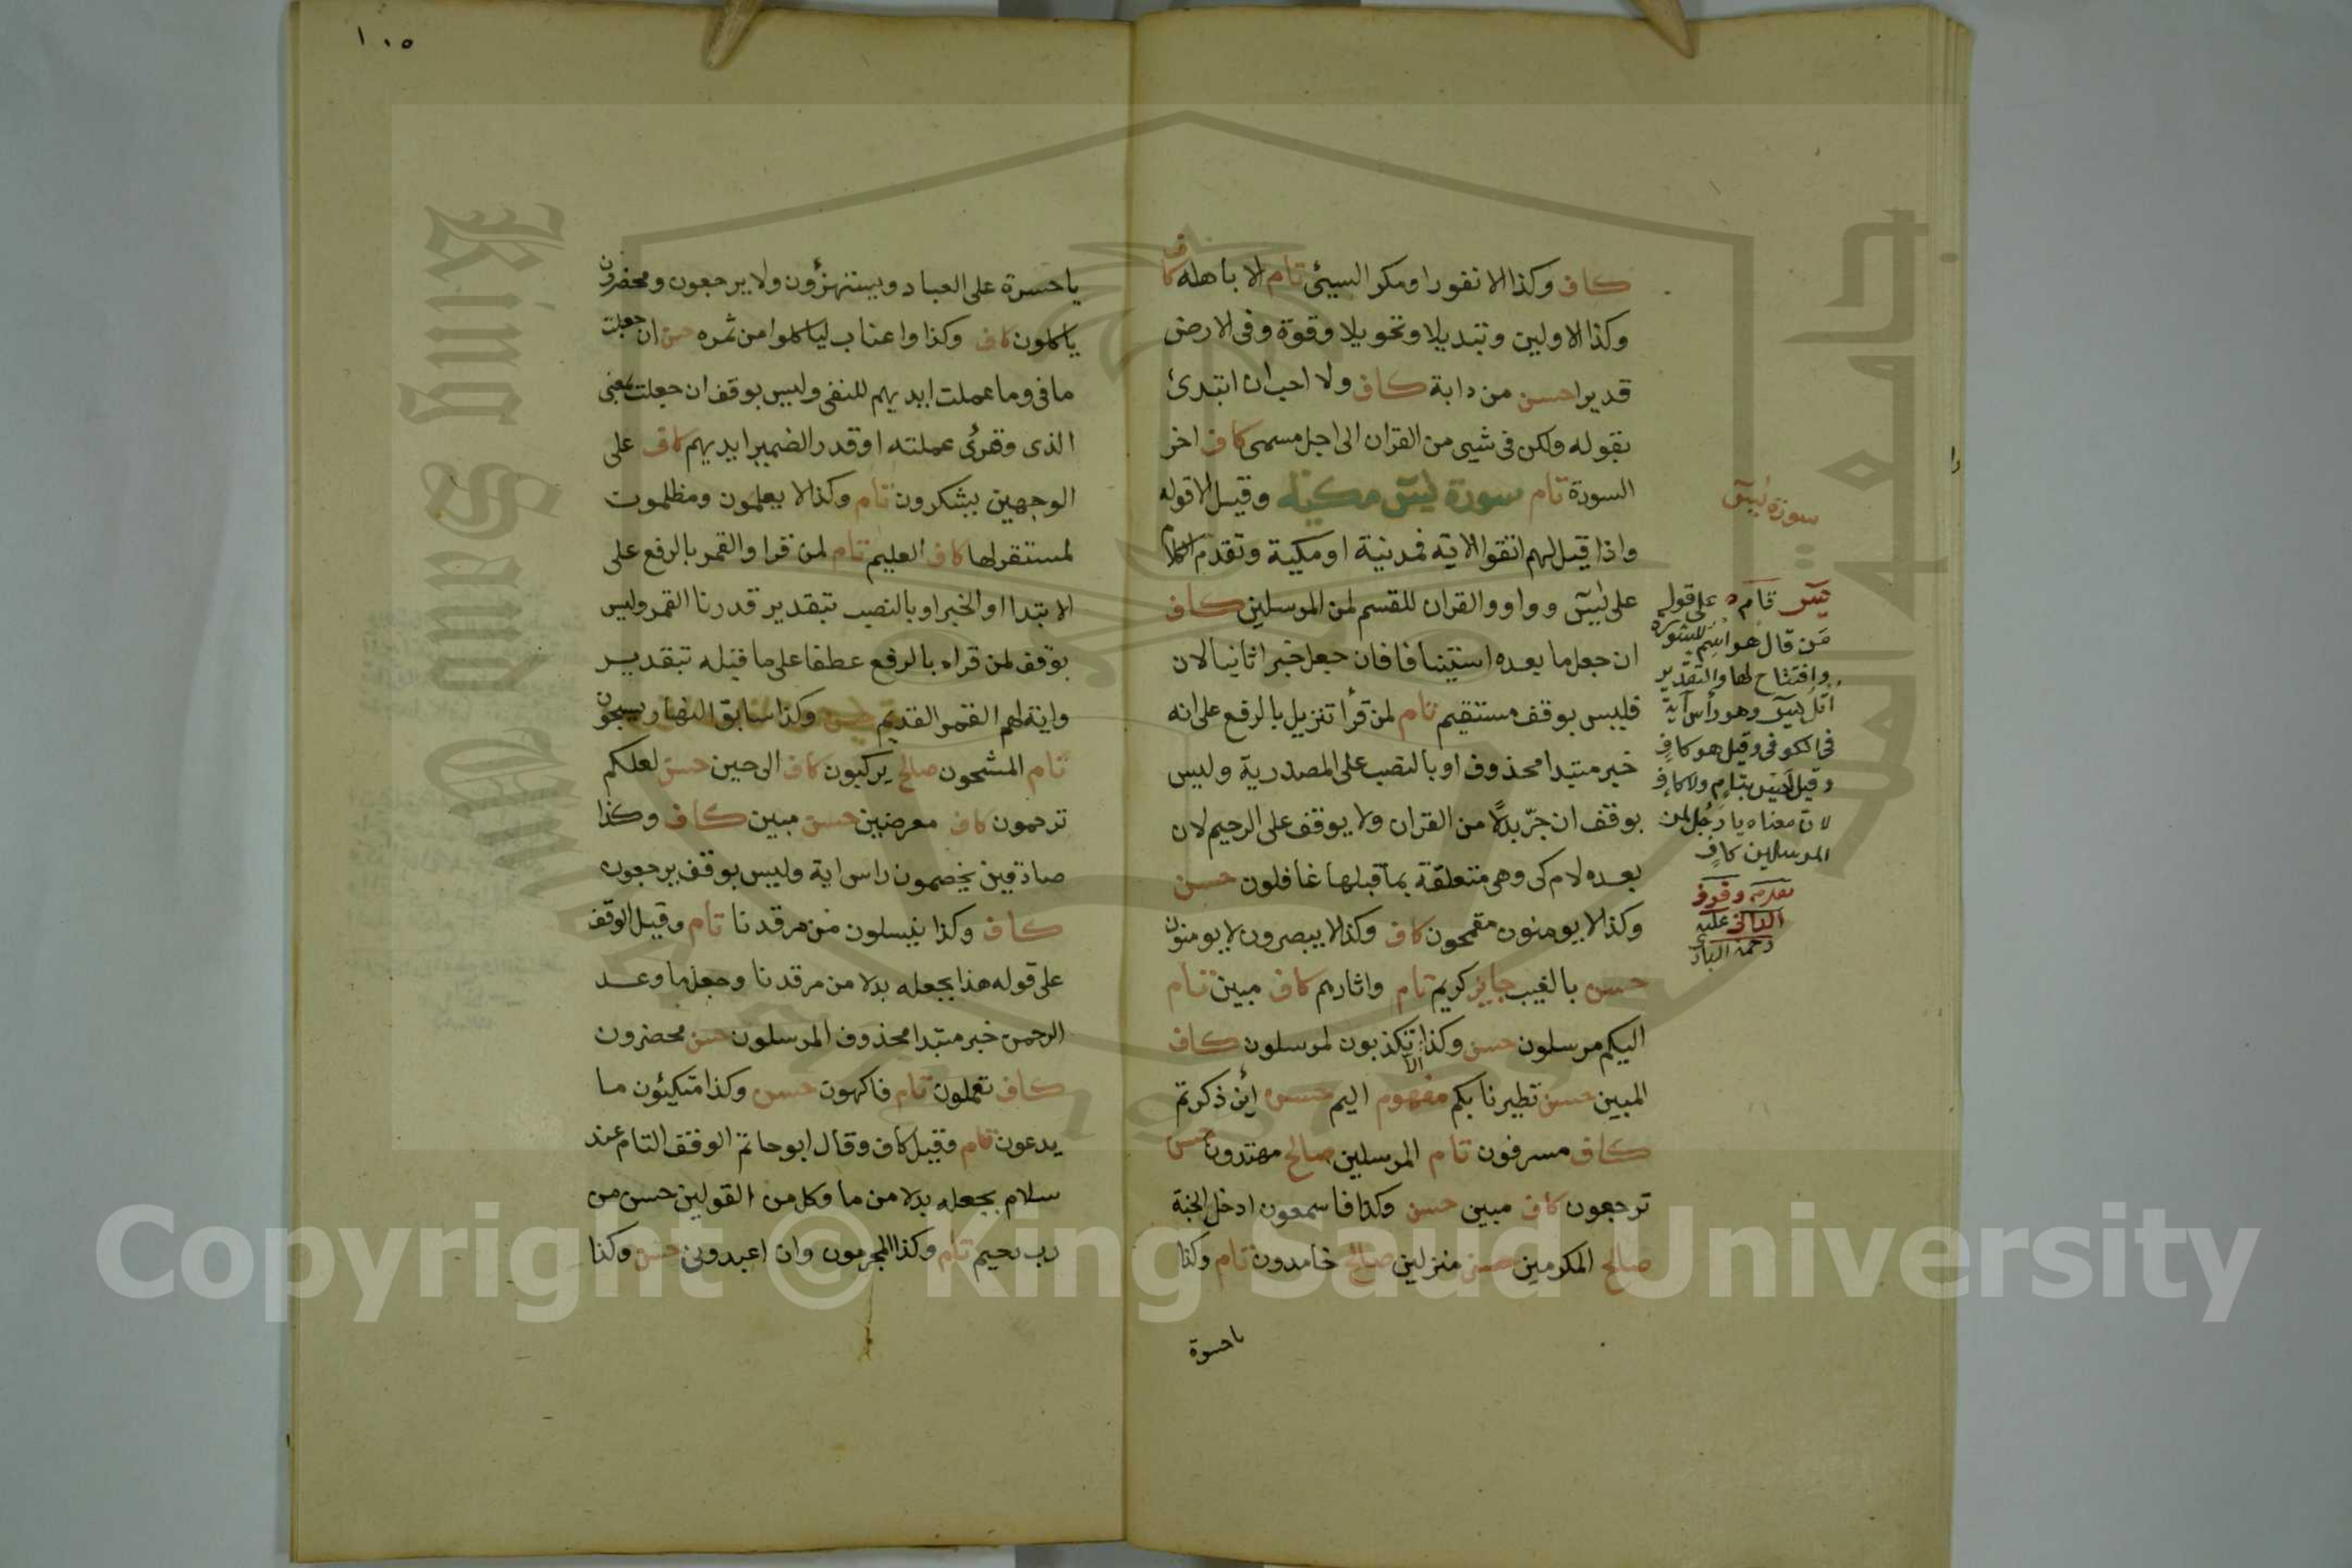 كاف وكذا الا نفورا ومكر السيئ تام الا باهله كاف
وكذا الاولين وتبديلا وتحويلا وقوة وفى الارض
قديرا حسن من دابة كاف ولا احب ان ابتدئ
بقوله ولكن فى شيى من القران الى اجل مسمى كاف اخر
السورة تام سورة يس مكية وقيل الا قوله
واذا قيل لهم انفقوا الاية فمدنية او مكية وتقدم الكلام
على يس وواو والقران للقسم لمن المرسلين كاف
ان جعل ما بعده استينافا فان جعل خبرا ثانيا لان
فليس بوقف مستقيم تام لمن قرأ تنزيل بالرفع على انه
خبر مبتدا محذوف او بالنصب على المصدرية وليس
بوقف ان جرّ بدلًا من القران ولا يوقف على الرحيم لان
بعده لام كى وهى متعلقة بما قبلها غافلون حسن
وكذا لا يومنون مقمحون كاف وكذا لا يبصرون لا يومنون
حسن بالغيب جايز كريم تام واثارهم كاف مبين تام
اليكم مرسلون حسن وكذا الا تكذبون لمرسلون كاف
المبين حسن تطيرنا بكم مفهوم اليم حسن أين ذكرتم
كاف مسرفون تام المرسلين صالح مهتدون حسن
ترجعون كاف مبين حسن وكذا فاسمعون ادخل الجنة
صالح المكرمين حسن منزلين صالح خامدون تام وكذا
ياحسرة
سورة يس
يس تام على قول
من قال هو اسم للسورة
وافتتاح لها والتقدير
اتل يس وهو رأس آية
فى الكوفى وقيل هو كاف
وقيل ليس بتام ولا كاف
لان معناه يا رجل لمن
المرسلين كاف
وقوف
الدانى عليه
رحمة البارى
١٠٥
ياحسرة على العباد ويستهزؤن ولا يرجعون ومحضرون
ياكلون كاف وكذا واعناب لياكلوا من ثمره حسن ان جعلت
ما فى وما عملت ايديهم للنفى وليس بوقف ان جعلت بمعنى
الذى وقرئ عملته او قدر الضمير ايديهم كاف على
الوجهين يشكرون تام وكذا لا يعلمون ومظلمون
لمستقر لها كاف العليم تام لمن قرا والقمر بالرفع على
الابتدا او الخبر او بالنصب بتقدير قدرنا القمر وليس
بوقف لمن قراه بالرفع عطفا على ما قبله بتقدير
واية لهم القمر القديم حسن وكذا سابق النهار يسبحون
تام المشحون صالح يركبون كاف الى حين حسن لعلكم
ترحمون كاف معرضين حسن مبين كاف وكذا
صادقين يخصمون راس اية وليس بوقف يرجعون
كاف وكذا ينسلون من مرقدنا تام وقيل الوقف
على قوله هذا بجعله بدلا من مرقدنا وجعل ما وعد
الرحمن خبر مبتدا محذوف المرسلون حسن محضرون
كاف تعملون تام فاكهون حسن وكذا متكيئون ما
يدعون تام وقيل كاف وقال ابو حاتم الوقف التام عند
سلام بجعله بدلا من ما وكل من القولين حسن من
رب رحيم تام وكذا المجرمون وان اعبدونى حسن وكذا
King Saud University
جامعة الملك سعود
1957
Copyright © King Saud University